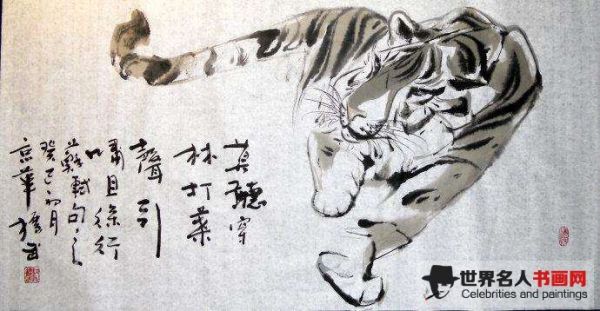 莫聽穿
林打葉
聲引
嘯且徐行
以蘇軾句之
癸巳月
京華
世界名人书画网
Celebrities and paintings